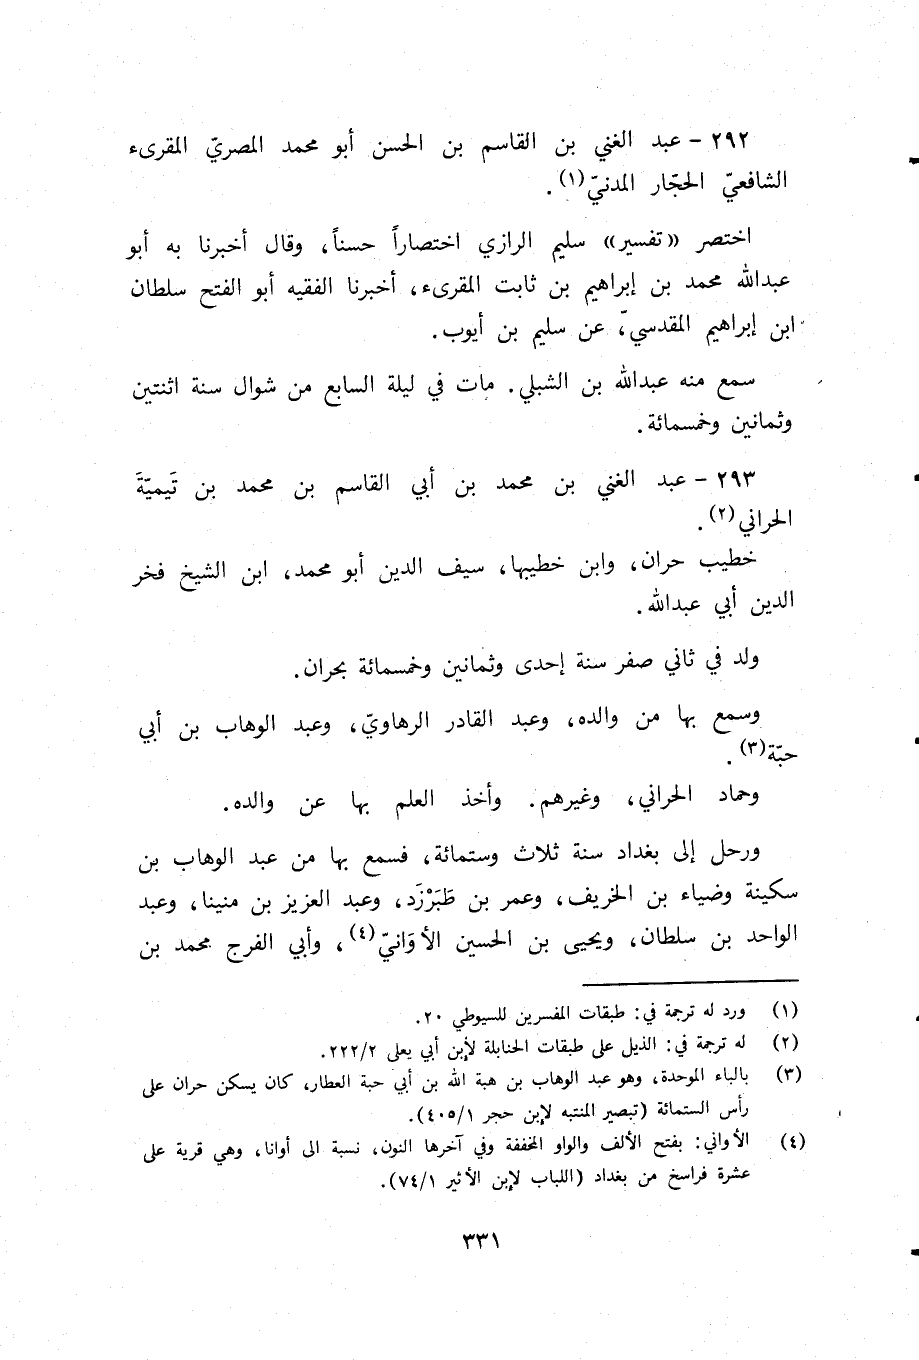 ٢٩٢ - عبد الغني بن القاسم بن الحسن أبو محمد المصريّ المقرىء
الشافعيّ الحجّار المدنيّ(١).
اختصر «تفسير» سليم الرازي اختصاراً حسناً، وقال أخبرنا به أبو
عبدالله محمد بن إبراهيم بن ثابت المقرىء، أخبرنا الفقيه أبو الفتح سلطان
ابن إبراهيم المقدسيّ، عن سليم بن أيوب.
سمع منه عبدالله بن الشبلي. مات في ليلة السابع من شوال سنة اثنتين
وثمانين وخمسمائة.
٢٩٣ - عبد الغني بن محمد بن أبي القاسم بن محمد بن تَيميّةَ
الحراني(٢).
خطيب حران، وابن خطيبها، سيف الدين أبو محمد، ابن الشيخ فخر
الدين أبي عبدالله.
ولد في ثاني صفر سنة إحدى وثمانين وخمسمائة بحران.
وسمع بها من والده، وعبد القادر الرهاويّ، وعبد الوهاب بن أبي
حبّة(٣).
وحماد الحراني، وغيرهم. وأخذ العلم بها عن والده.
ورحل إلى بغداد سنة ثلاث وستمائة، فسمع بها من عبد الوهاب بن
سكينة وضياء بن الخريف، وعمر بن طَبَرْزَد، وعبد العزيز بن منينا، وعبد
الواحد بن سلطان، ويحيى بن الحسين الأوَانيّ(٤)، وأبي الفرج محمد بن
(١) ورد له ترجمة في: طبقات المفسرين للسيوطي ٢٠.
(٢) له ترجمة في: الذيل على طبقات الحنابلة لإبن أبي يعلى ٢٢٢/٢.
(٣) بالباء الموحدة، وهو عبد الوهاب بن هبة الله بن أبي حبة العطار، كان يسكن حران على
رأس الستمائة (تبصير المنتبه لإبن حجر ٤٠٥/١).
(٤) الأواني: بفتح الألف والواو المخففة وفي آخرها النون، نسبة الى أوانا، وهي قرية على
عشرة فراسخ من بغداد (اللباب لإبن الأثير ٧٤/١).
٣٣١